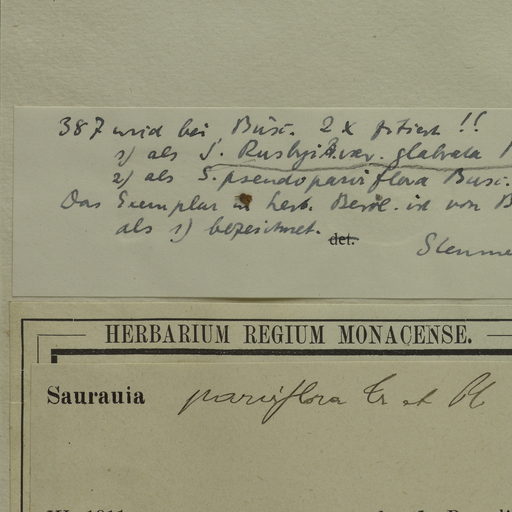 387 wird bei Busc. 2x zitiert !!
1) als S. Rusbyi var. glabrata
2) als S. pseudoparviflora Busc.
Das Exemplar in herb. Berol. ist von B
als 1) bezeichnet.
det.
HERBARIUM REGIUM MONACENSE.
Saurauia parviflora Tr et Pl